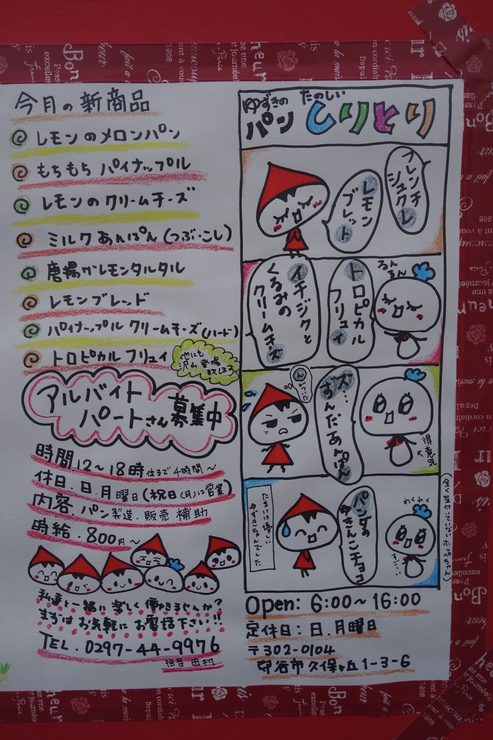 今月の新商品
レモンのメロンパン
もちもち パイナップル
レモンのクリームチーズ
ミルクあんぱん(つぶ・こし)
唐揚げレモンタルタル
レモンブレッド
パイナップル クリームチーズ(ハード)
トロピカルフリュイ
他にも
沢山登場
アルバイト
パートさん募集中
時間 12〜18時
休日.日.月曜日(祝日(月)は営業)
内容.パン製造.販売 補助
時給.800円〜
私達と一緒に楽しく働きませんか?
まずはお気軽にお電話下さい!!
TEL.0297-44-9976
担当 田村
ゆずきの
たのしい
パン しりとり
フレンチ
シュクレ
レモン
ブレット
るん
るん
トロピカル
フリュイ
イチジクと
くるみの
クリームチーズ
ズ…
ずんだあんぱん
得意気
パンダの
ゆきんこチョコ
わくわく
Open: 6:00〜16:00
定休日:日.月曜日
〒302-0104
守谷市久保ヶ丘1-3-6